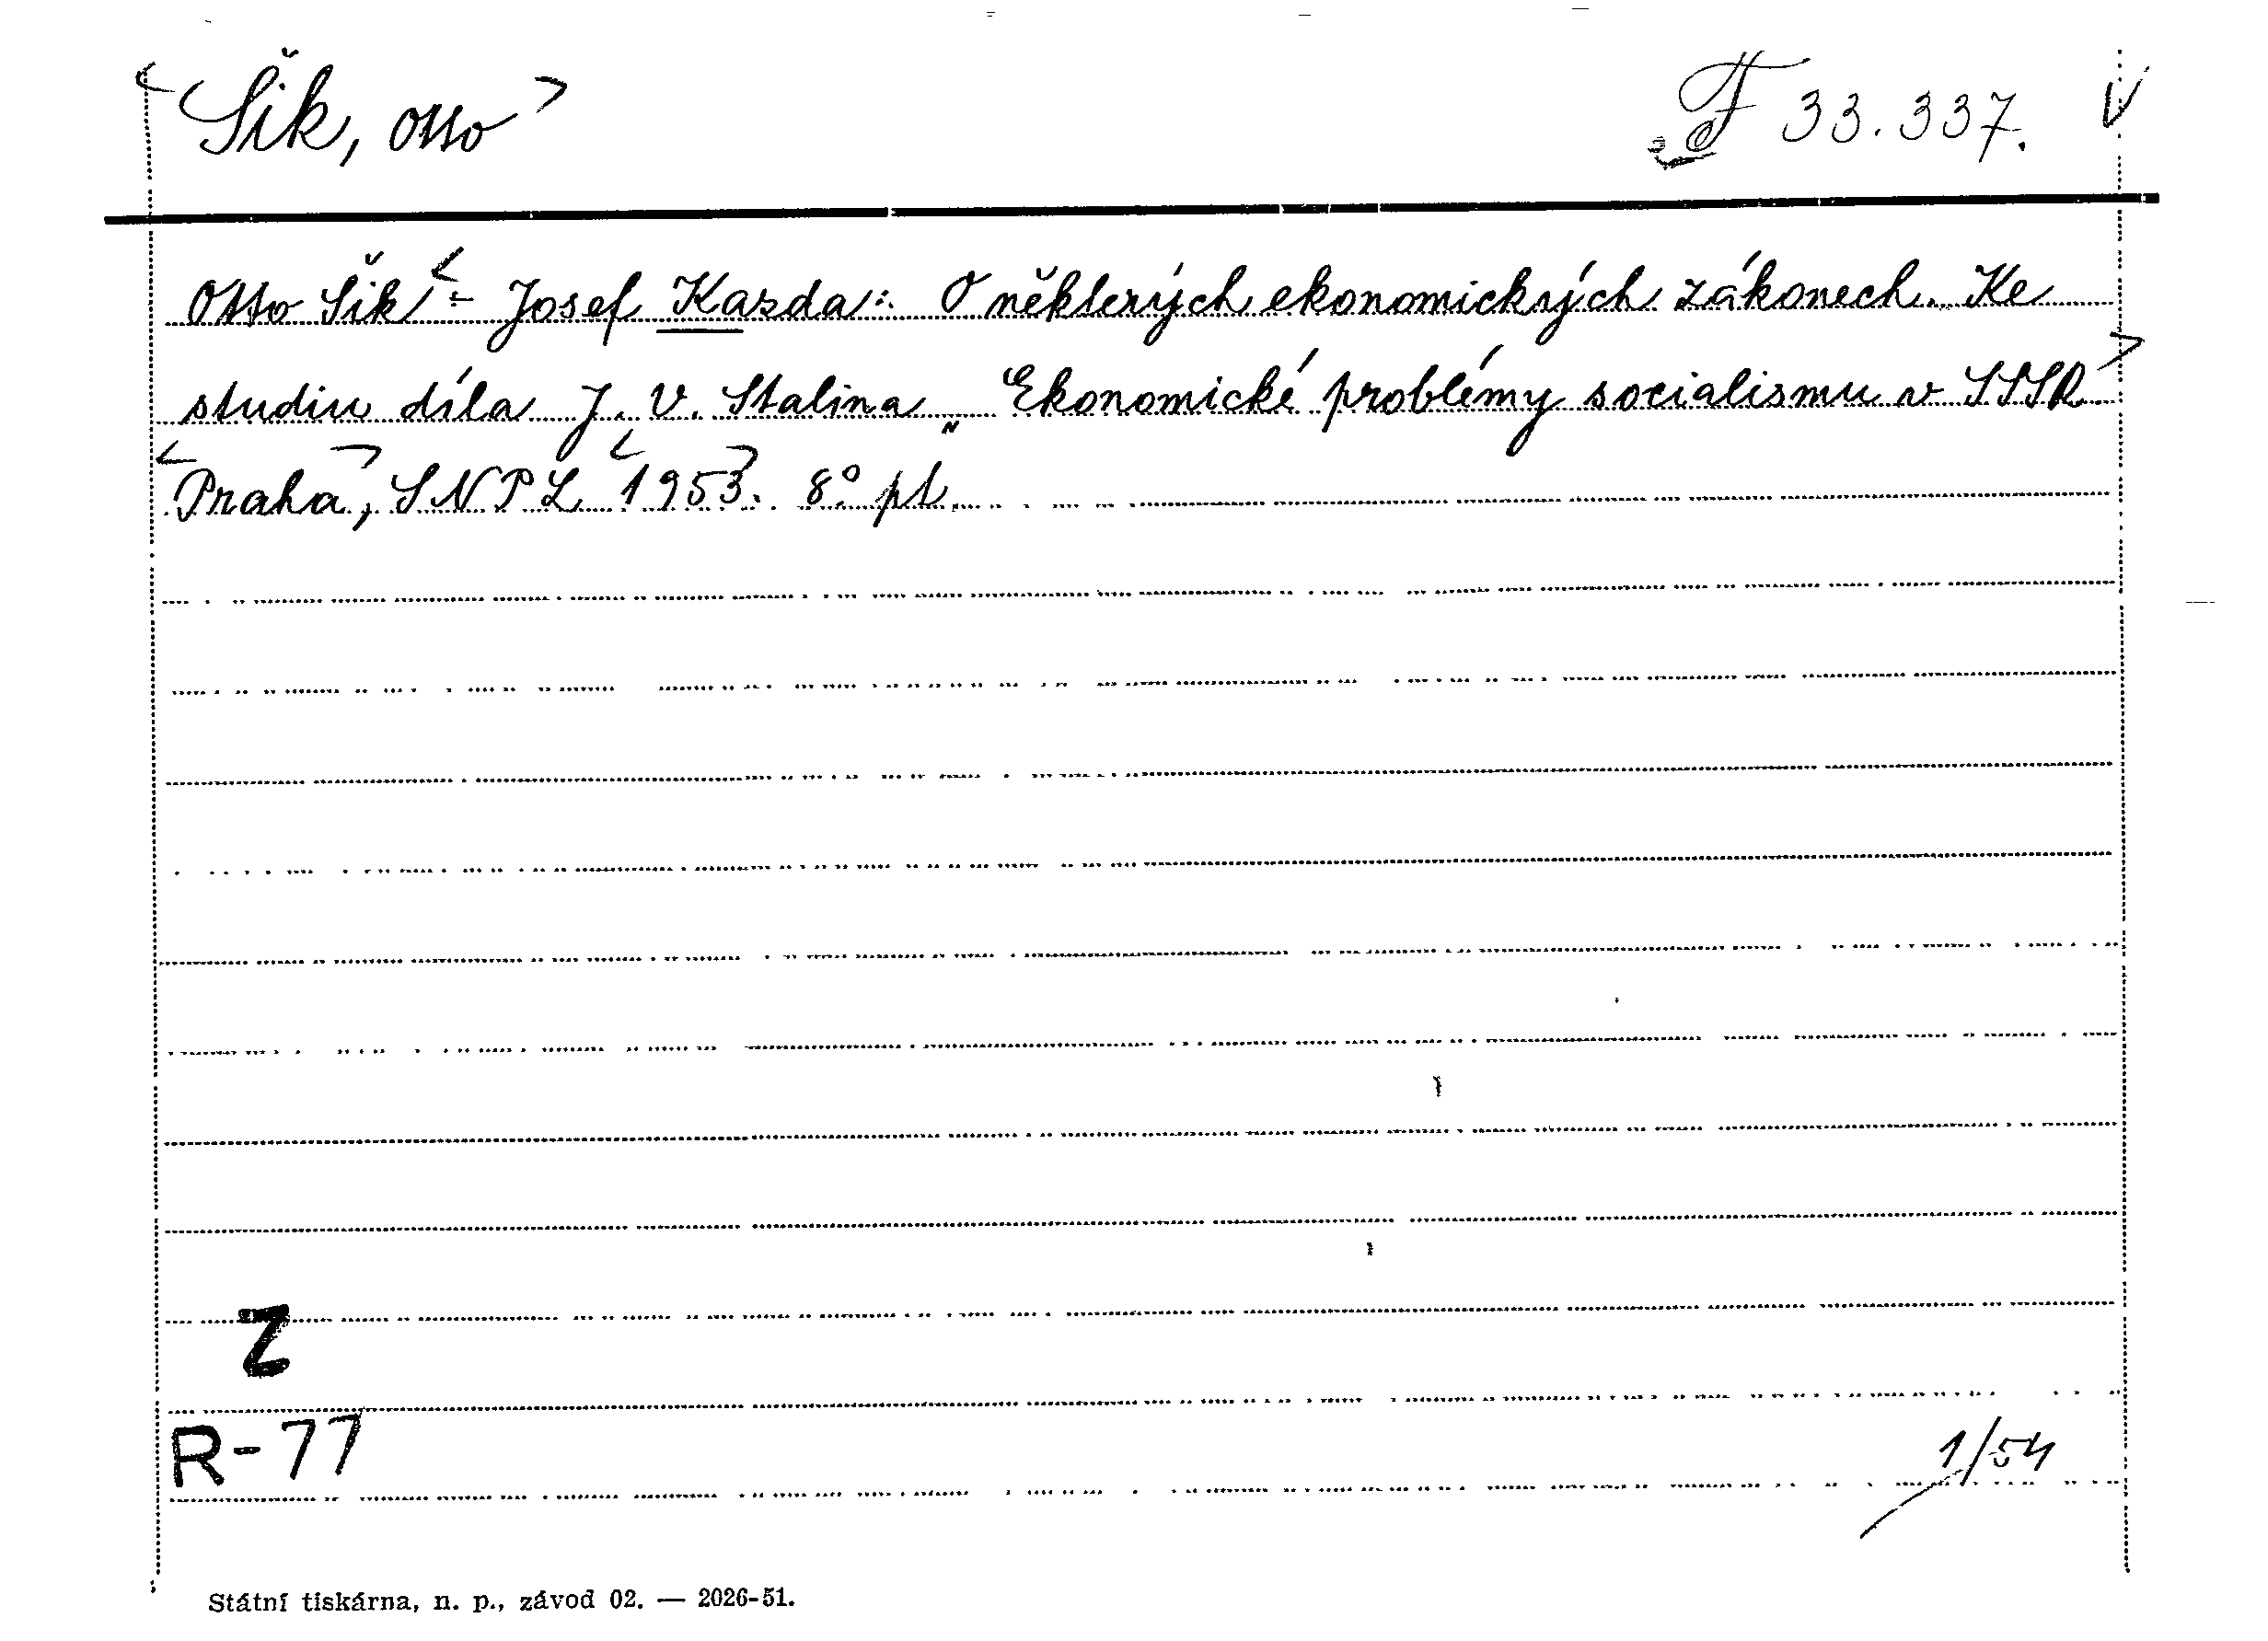 <Šik, Otto> F 33.337. V
Otto Šik <- Josef Kazda: O některých ekonomických zákonech. Ke
studiu díla J. V. Stalina „Ekonomické problémy socialismu v SSSR>
<Praha>, SNPL <1953>. 8° pt.
Z
R-77
1/54
Státní tiskárna, n. p., závod 02. — 2026-51.